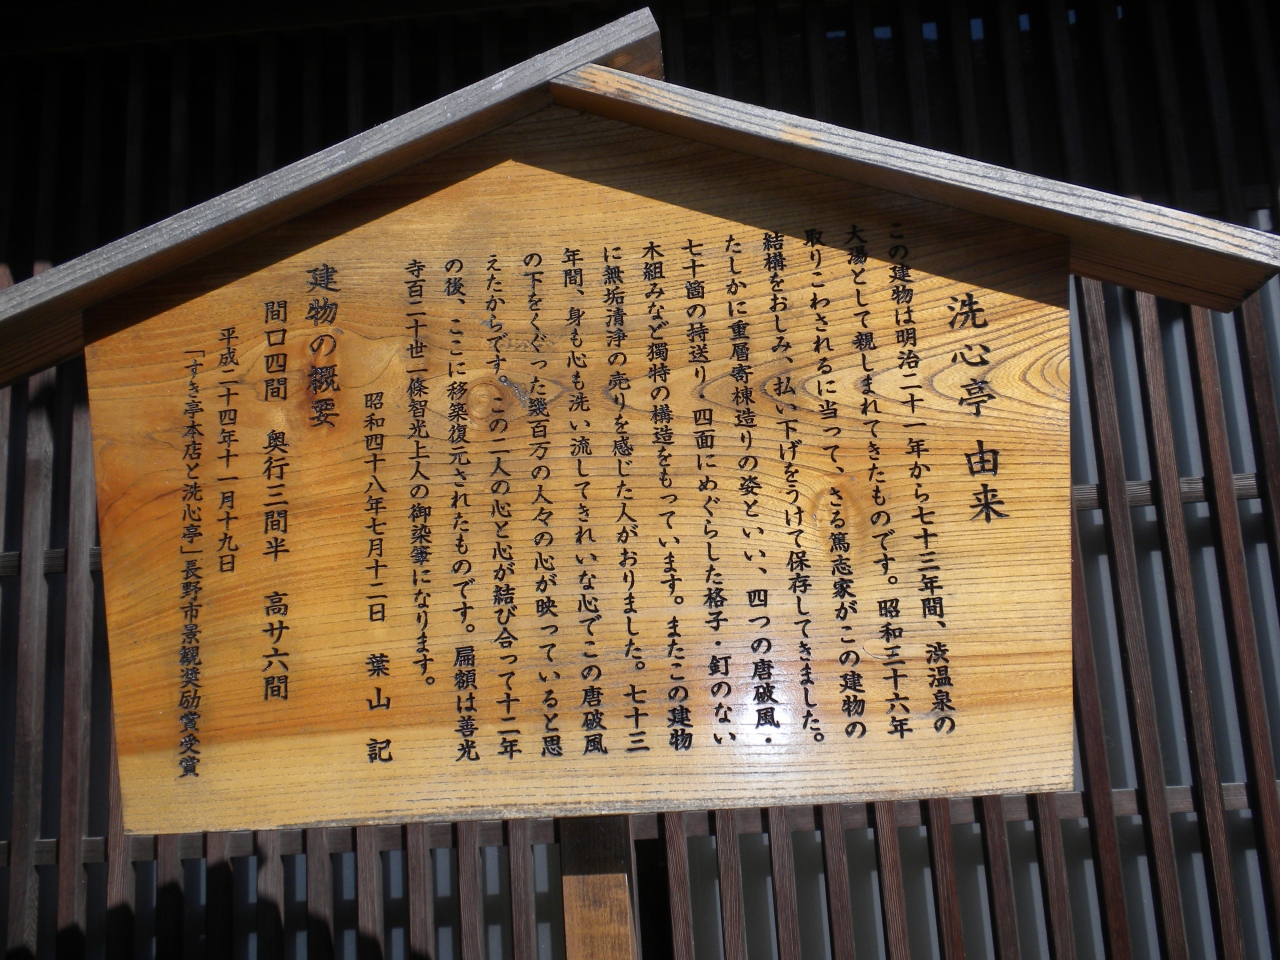 洗心亭 由来
この建物は明治二十一年から七十三年間、渋温泉の
大湯として親しまれてきたものです。昭和三十六年
取りこわされるに当って、さる篤志家がこの建物の
結構をおしみ、払い下げをうけて保存してきました。
たしかに重層寄棟造りの姿といい、四つの唐破風・
七十箇の持送り・四面にめぐらした格子・釘のない
木組みなど獨特の構造をもっています。またこの建物
に無垢清浄の売りを感じた人がおりました。七十三
年間、身も心も洗い流してきれいな心でこの唐破風
の下をくぐった幾百万の人々の心が映っていると思
えたからです。この二人の心と心が結び合って十二年
の後、ここに移築復元されたものです。扁額は善光
寺百二十世一條智光上人の御染筆になります。
昭和四十八年七月十二日 葉山 記
建物の概要
間口四間 奥行三間半 高サ六間
平成二十四年十一月十九日
「すき亭本店と洗心亭」長野市景観奨励賞受賞